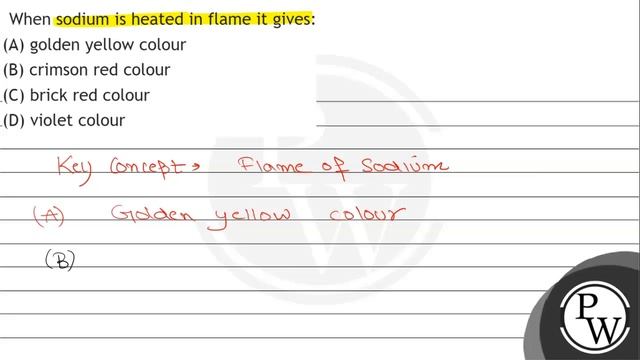 When sodium is heated in flame it gives:
(A) golden yellow colour
(B) crimson red colour
(C) brick red colour
(D) violet colour
Key Concept → Flame of Sodium
(A) Golden yellow colour
(B)
PW